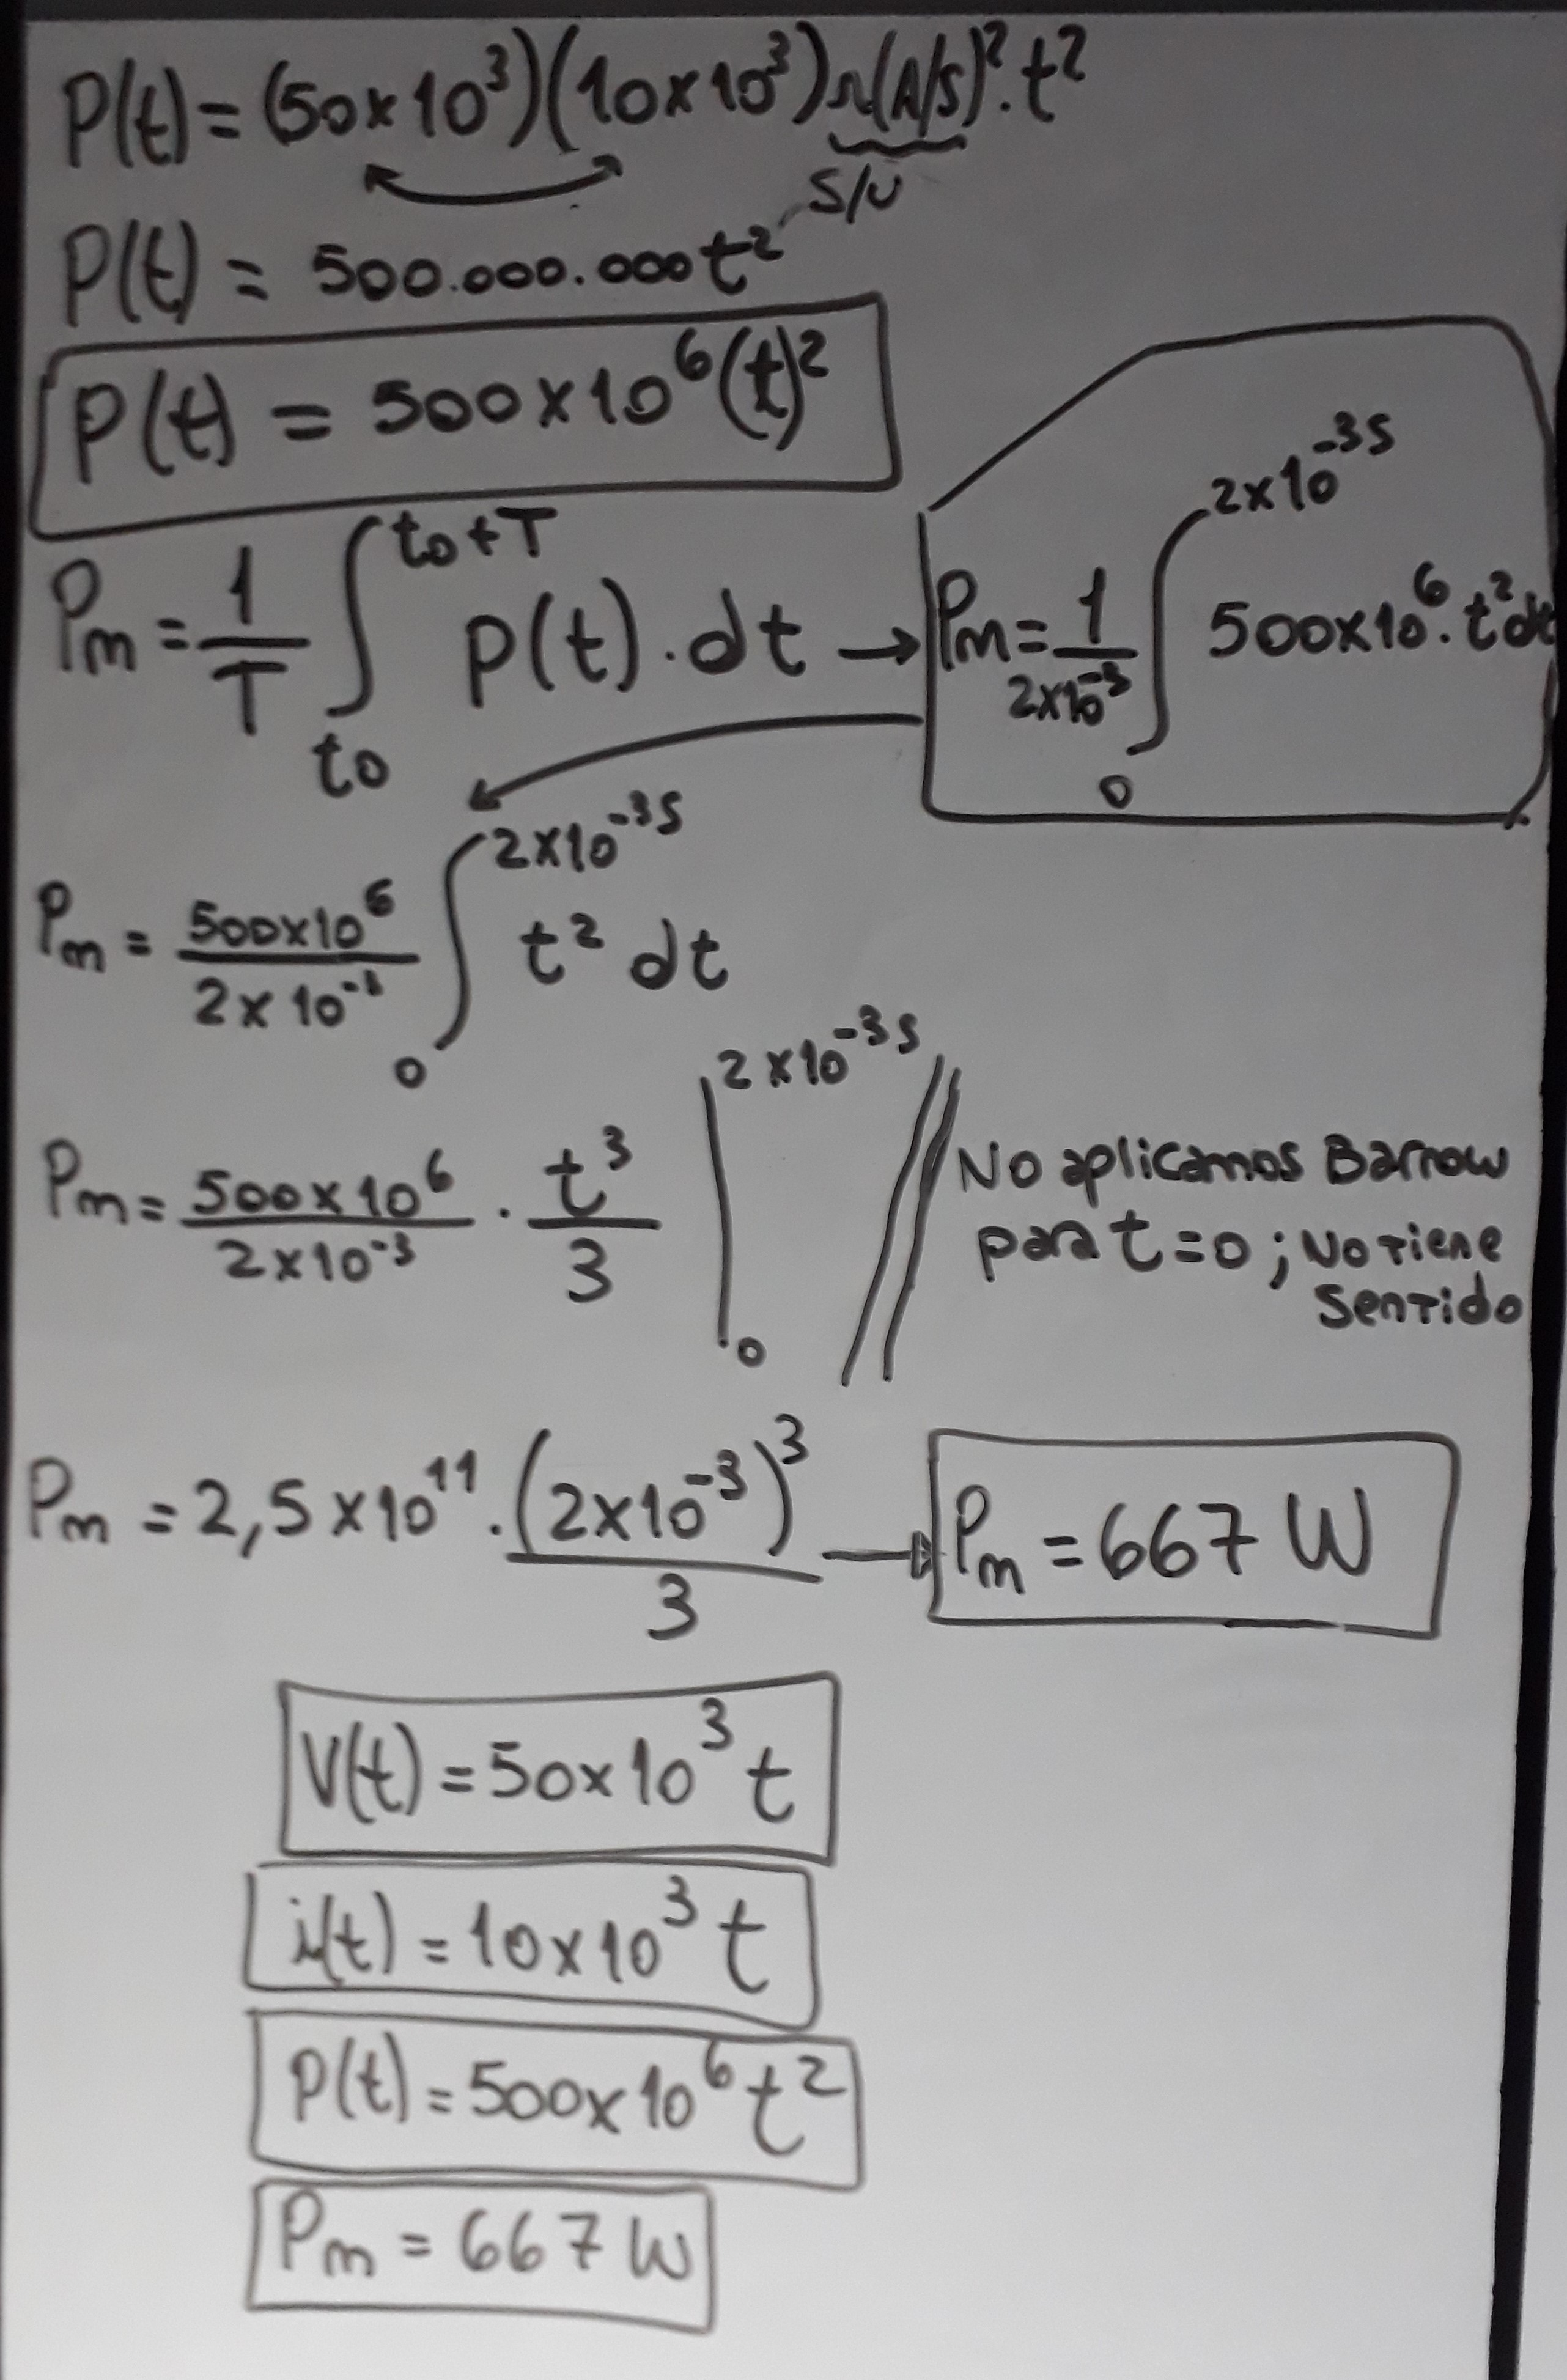 P(t) = (50x10³)(10x10³) Ω(A/s)².t²
S/U
P(t) = 500.000.000 t²
P(t) = 500x10⁶(t)²
Pm = 1/T ∫ to to+T p(t).dt → Pm = 1/2x10⁻³ ∫ 0 2x10⁻³s 500x10⁶.t²dt
Pm = 500x10⁶/2x10⁻³ ∫ 0 2x10⁻³s t² dt
Pm = 500x10⁶/2x10⁻³ . t³/3 | 0 2x10⁻³s // No aplicamos Barrow
para t=0 ; No tiene
sentido
Pm = 2,5x10¹¹ . (2x10⁻³)³/3 → Pm = 667 W
V(t) = 50x10³ t
i(t) = 10x10³ t
P(t) = 500x10⁶ t²
Pm = 667 W